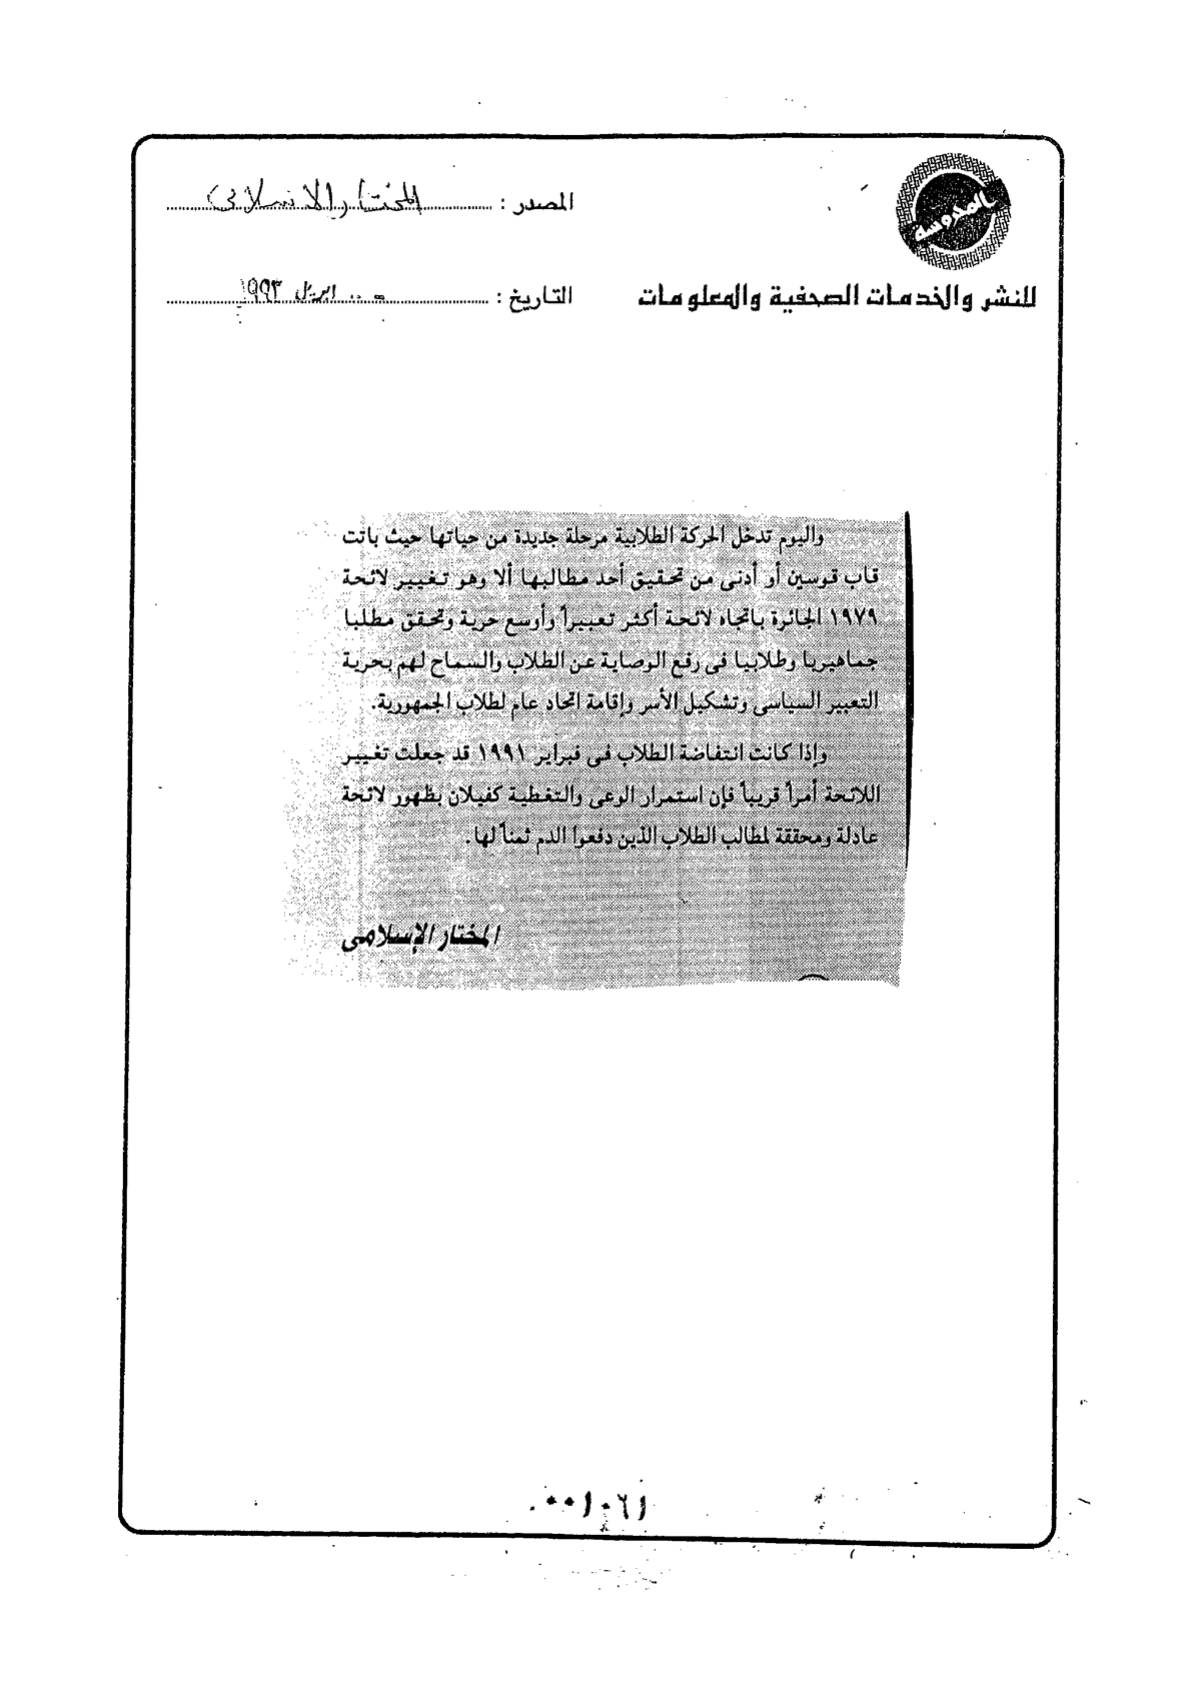 المحروسة
للنشر والخدمات الصحفية والمعلومات
المصدر : المختار الاسلامى
التاريخ : ابريل ١٩٩٣
واليوم تدخل الحركة الطلابية مرحلة جديدة من حياتها حيث باتت
قاب قوسين أو أدنى من تحقيق أحد مطالبها ألا وهو تغيير لائحة
١٩٧٩ الجائرة باتجاه لائحة أكثر تعبيراً وأوسع حرية وتحقق مطلبا
جماهيريا وطلابيا فى رفع الوصاية عن الطلاب والسماح لهم بحرية
التعبير السياسى وتشكيل الأسر وإقامة اتحاد عام لطلاب الجمهورية.
وإذا كانت انتفاضة الطلاب فى فبراير ١٩٩١ قد جعلت تغيير
اللائحة أمراً قريباً فإن استمرار الوعى والتغطية كفيلان بظهور لائحة
عادلة ومحققة لمطالب الطلاب الذين دفعوا الدم ثمناً لها.
المختار الإسلامى
٠٠٠١٠٦١